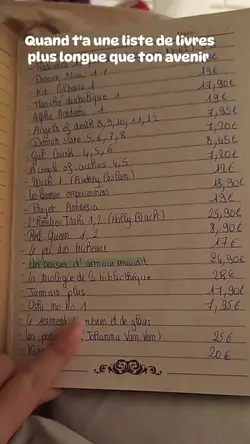 Quand t'a une liste de livres
plus longue que ton avenir
- Demon Alia 1 19€
- Kit Colbaux 1 17,90€
- Marche diabolique 1 19€
- Alpha Academi 1 7,95€
- Angels of death 8, 9, 10, 11, 12 7,20€
- Demon slave 5, 6, 7, 8 8,45€
- Gat Crush 4, 5, 6 7,20€
- A couple of cuckoos 4, 5
- Wish 1 (Audrey Carlan) 18,90€
- Les larmes empoisonnées 19€
- Projet Amnesia
- L'héritier Trahi 1, 2 (Holly Black) 25,90€
- Red Queen 1, 2 8,90€
- Le jeu des tricheurs 17€
- Un baiser d'amour maudit 24,90€
- La trilogie de la bibliothèque 28€
- Jamais plus 17,90€
- Oshi no ko 1 7,95€
- le serment d'ombres et de glaces
(Johanna Van Veen) 25€
20€